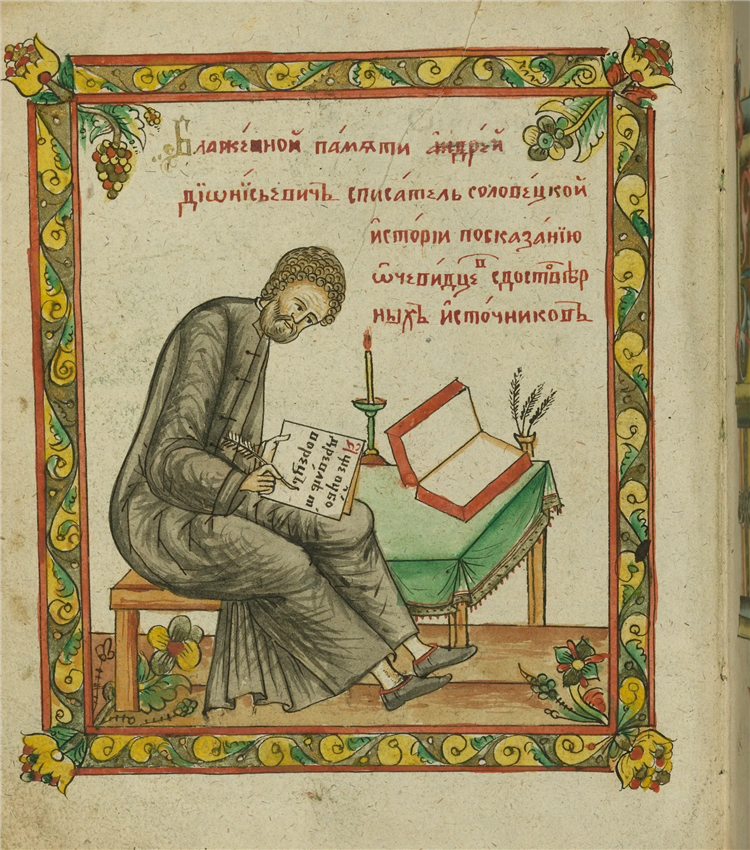 Блаже́нной па́мѧти андре́й
дїѡнїсьевичъ списа́тель солове́цкой
и҆сто́рїи посказа́нїю
ѡ҆чеви́дцеⷡ҇ сдостовѣр
ныхъ и҆сто́чниковъ
Аще оубо